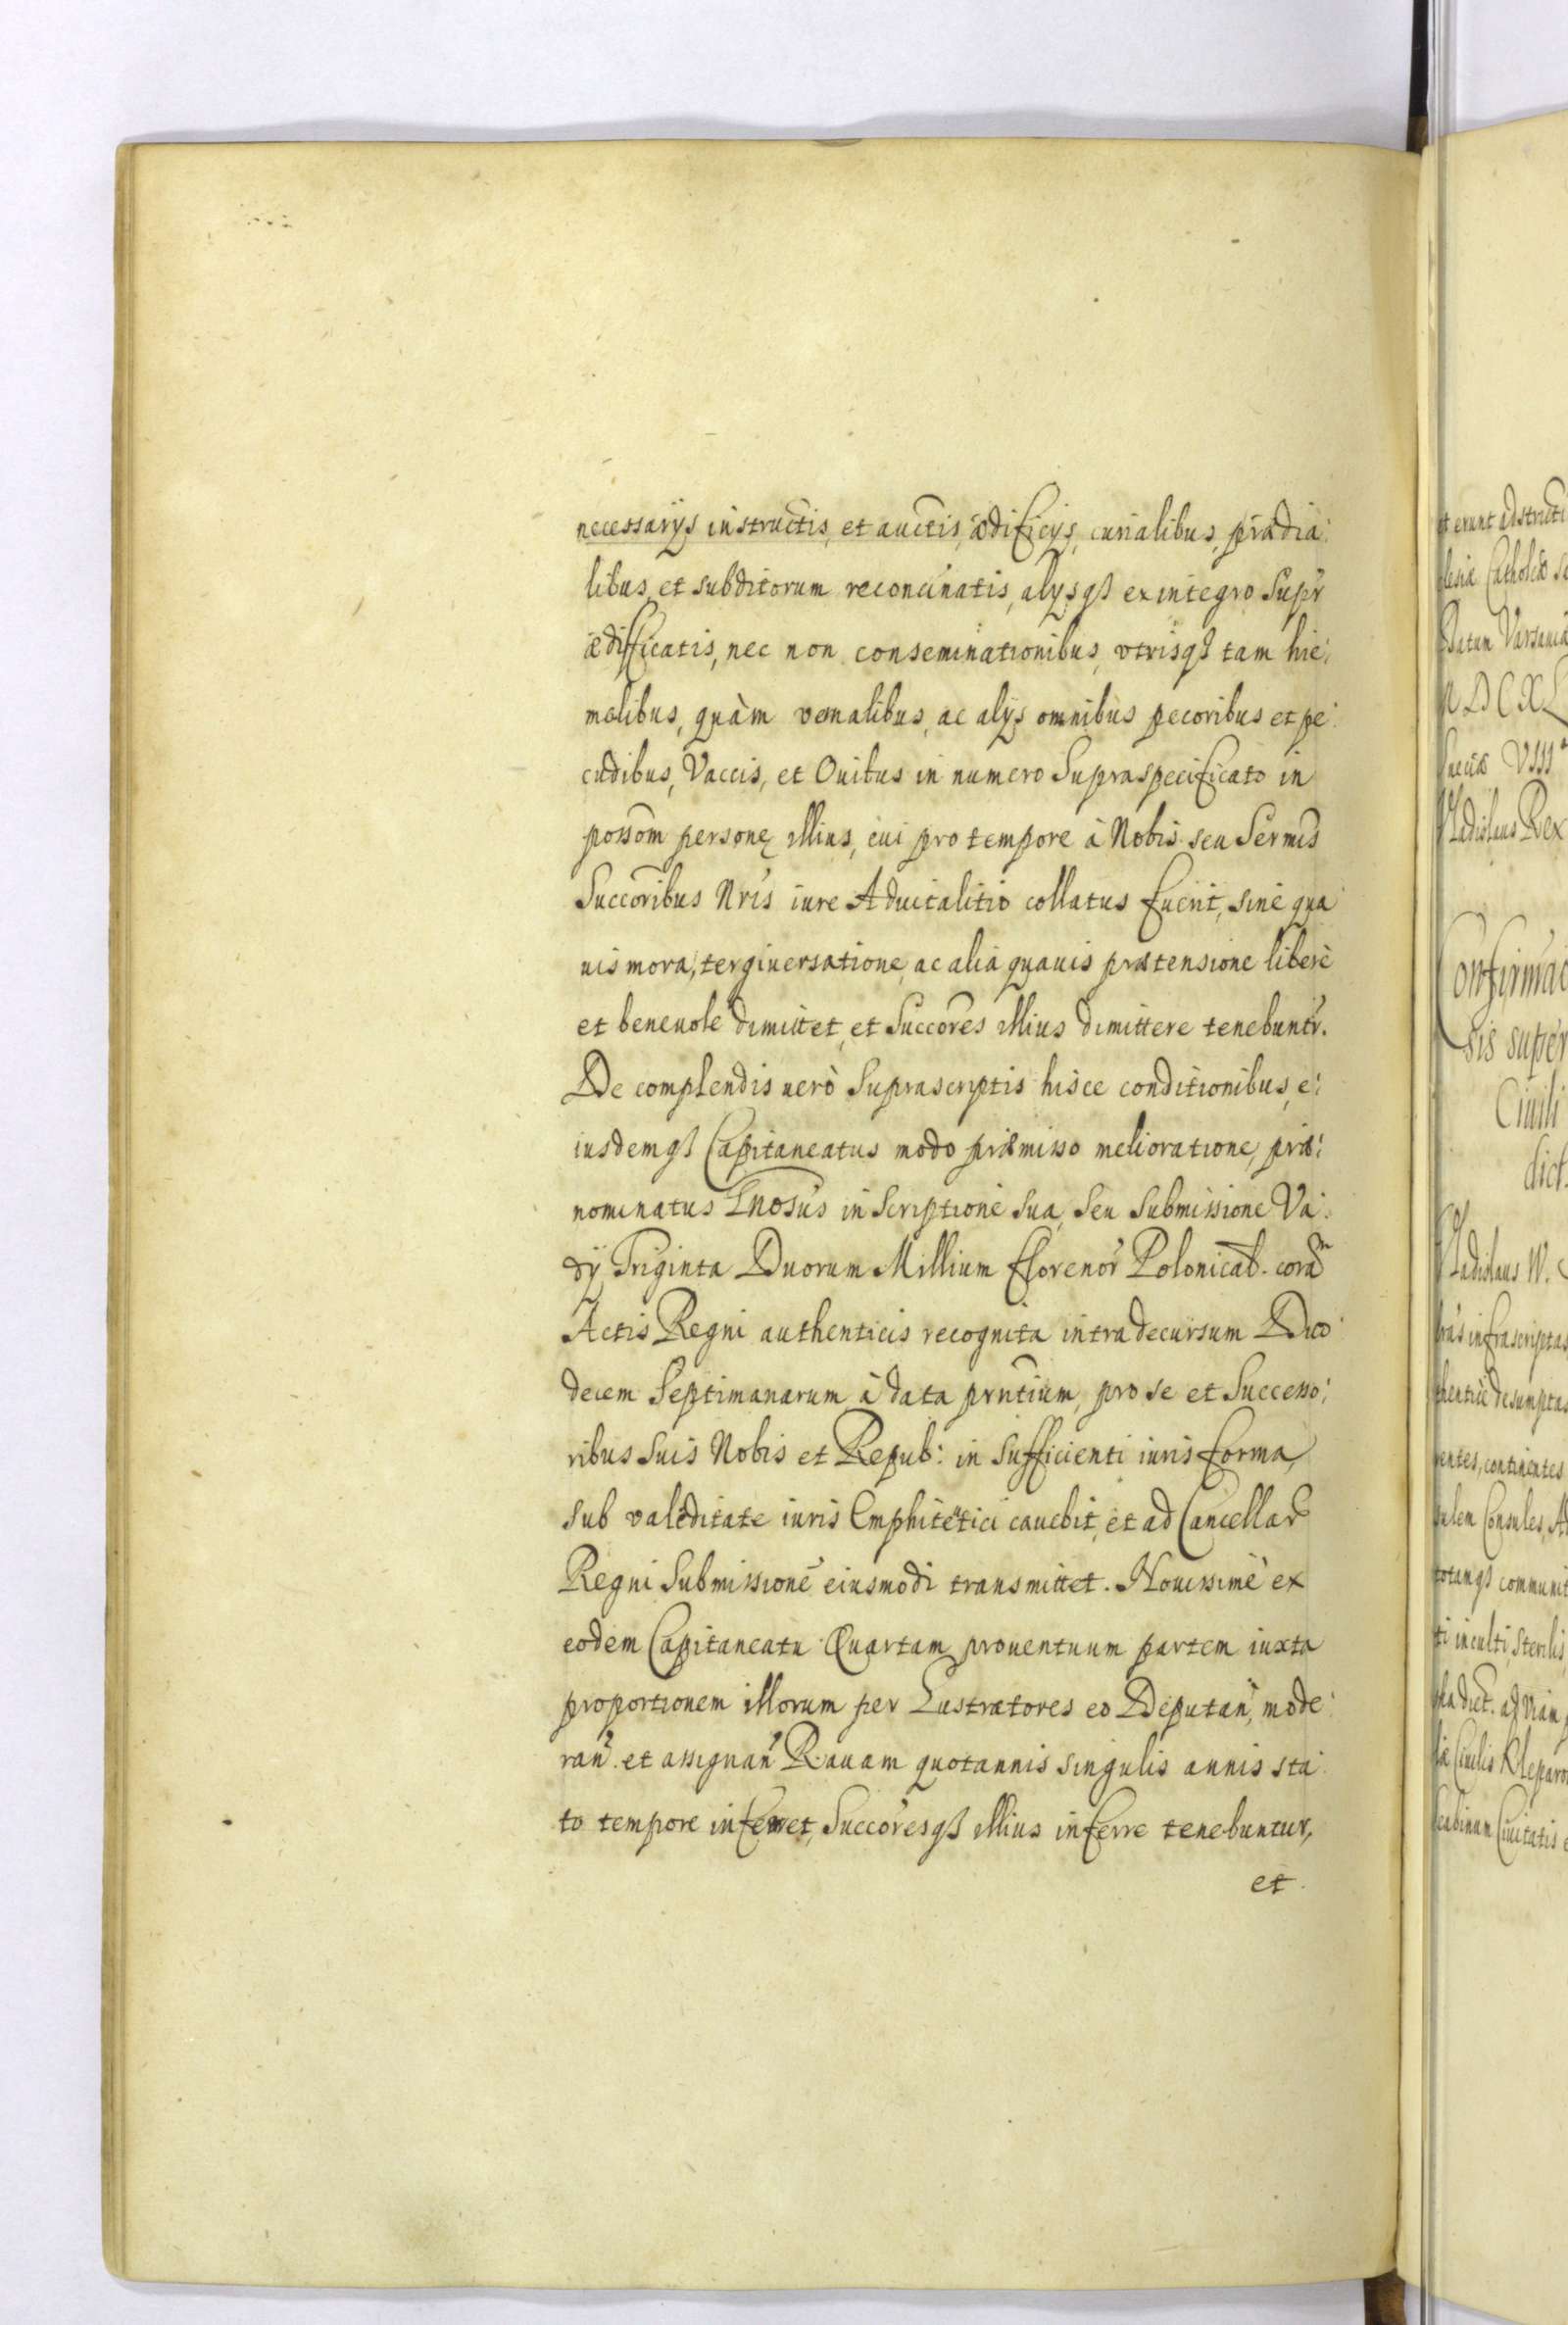 necessarijs instructis, et auctis, ædificijs, curialibus, prædia:
libus, et subditorum reconcinatis, alijsqȝ ex integro Supr
ædifficatis, nec non conseminationibus, vtrisqȝ tam hie:
malibus, quàm vernalibus, ac alijs omnibus pecoribus et pe:
cudibus, Vaccis, et Ouibus in numero Supraspecificato in
possom personę illius, cui pro tempore à Nobis seu Sermis
Succoribus Nris iure Aduitalitio collatus fuerit, sine qua:
uis mora, tergiuersatione, ac alia quauis prætensione liberè
et beneuole dimittet, et Succores illius dimittere tenebuntr.
De complendis uerò Suprascriptis hisce conditionibus, e:
iusdemqȝ Capitaneatus modo præmisso melioratione, præ:
nominatus Gnosus inscriptione sua, seu submissione Va:
dÿ Triginta Duorum Millium Florenor Polonical. coram
Actis Regni authenticis recognita intra decursum Duo:
decem Septimanarum à data prntium, pro se et Successo:
ribus suis Nobis et Repub: in sufficienti iuris forma,
sub valeditate iuris Emphitetici cauebit, et ad Cancellar
Regni Submissionē eiusmodi transmittet. Nouissimè ex
eodem Capitaneatu Quartam prouentuum partem iuxta
proportionem illorum per Lustratores eo Deputan, mode:
ran. et assignan Rauam quotannis singulis annis sta:
to tempore inferret, Succoresqȝ illius inferre tenebuntur,
et
erunt adstructi
Catholicæ
Datum Varsauiæ
MDCXL
Sueciæ VIII
Vladislaus Rex
Confirmac
sis super
Ciuili
dict.
Vladislaus IV.
infrascriptas
desumptas
continentes
Consules,
totamqȝ communit
ti inculti, sterilis
dict. ad viam
Ciuilis Klepar
Scabinum Ciuitatis